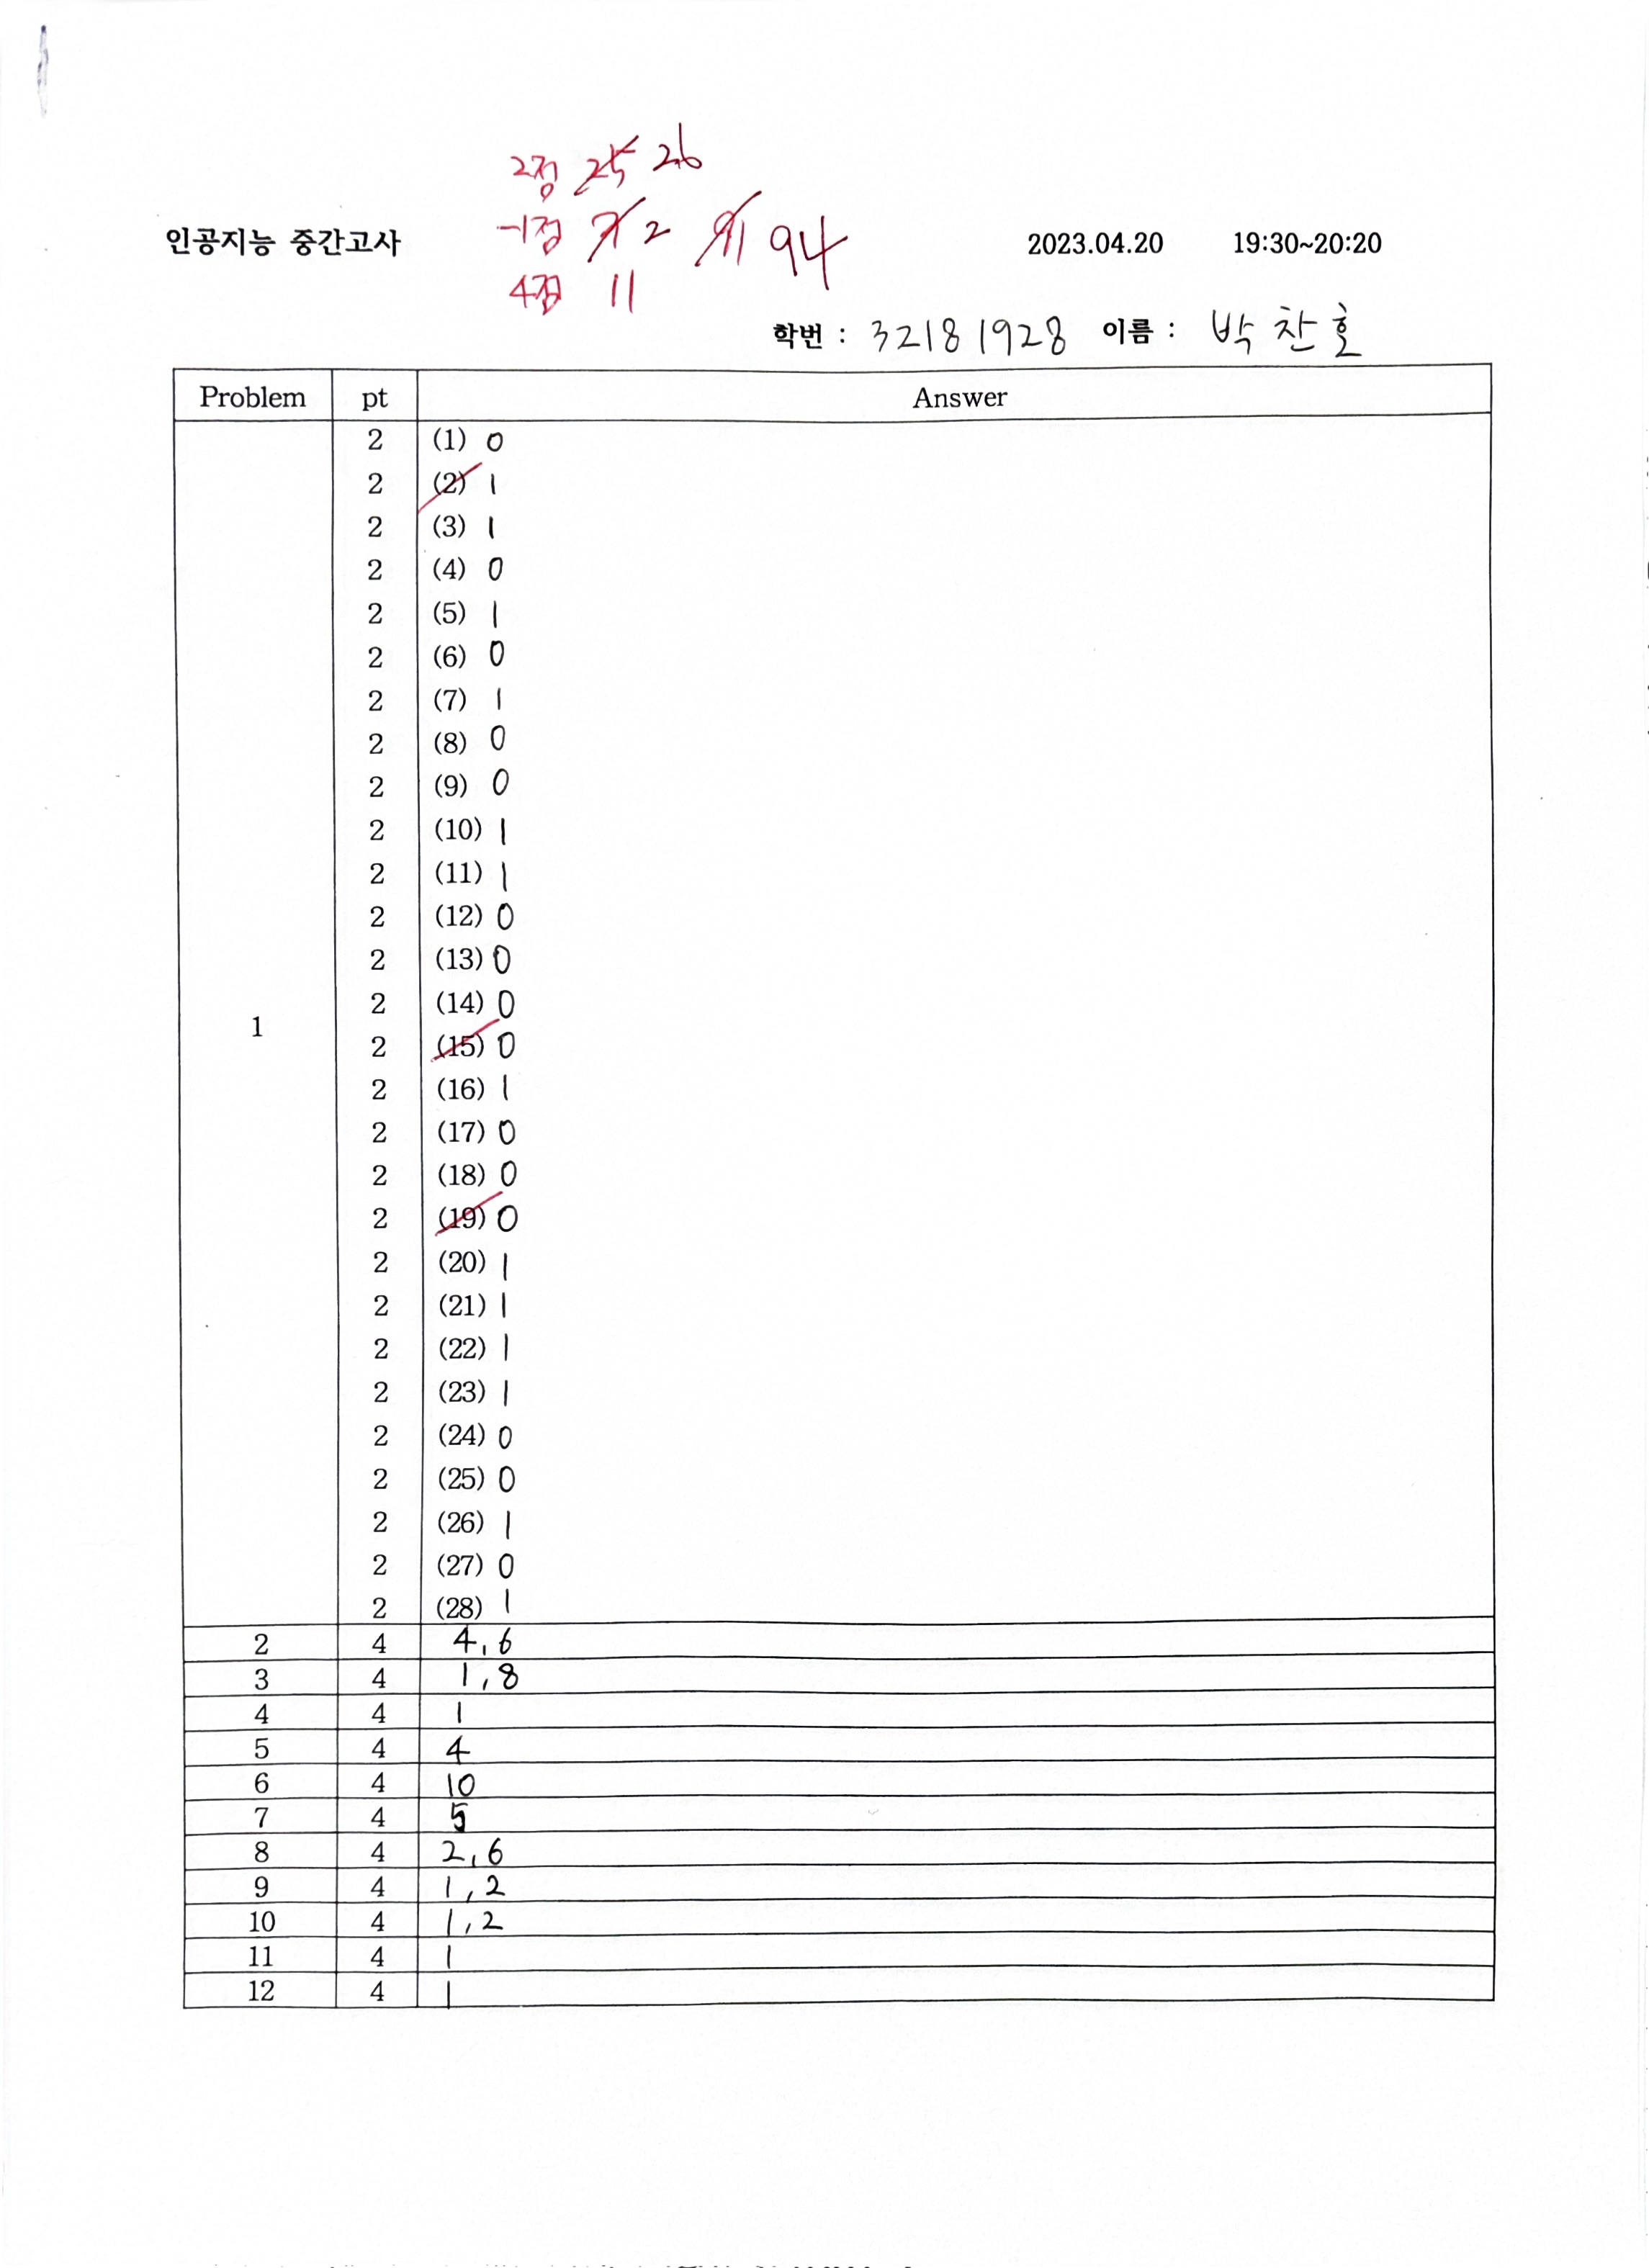 2점 25 26
인공지능 중간고사 -1점 7 2 91 94 2023.04.20 19:30~20:20
4점 11
학번 : 32181928 이름 : 박찬호
Problem pt Answer
1
2 (1) 0
2 (2) 1
2 (3) 1
2 (4) 0
2 (5) 1
2 (6) 0
2 (7) 1
2 (8) 0
2 (9) 0
2 (10) 1
2 (11) 1
2 (12) 0
2 (13) 0
2 (14) 0
2 (15) 0
2 (16) 1
2 (17) 0
2 (18) 0
2 (19) 0
2 (20) 1
2 (21) 1
2 (22) 1
2 (23) 1
2 (24) 0
2 (25) 0
2 (26) 1
2 (27) 0
2 (28) 1
2 4 4, 6
3 4 1, 8
4 4 1
5 4 4
6 4 10
7 4 5
8 4 2, 6
9 4 1, 2
10 4 1, 2
11 4 1
12 4 1